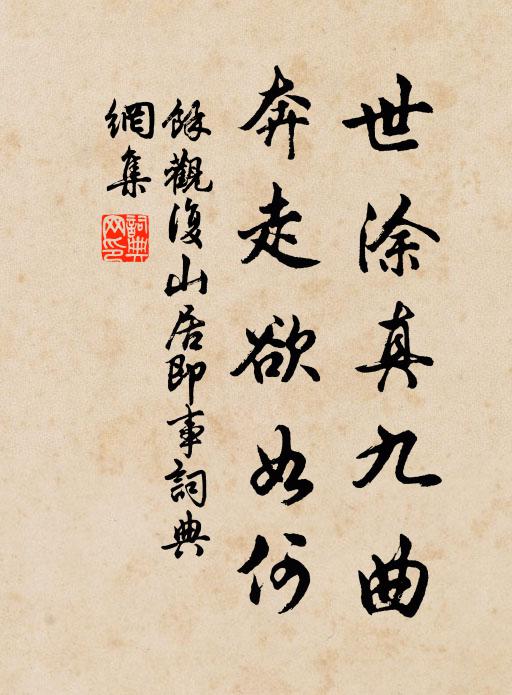 世涂真九曲
奔走欲如何
餘觀復山居即事詞典
網集
詞典網印